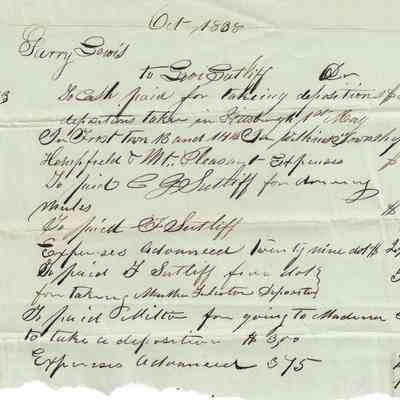 Oct 1838
Harry Lewis
to Levi Sutliff Dr
To Cash paid for tahcing depositions
depositions taken in Pittsburgh 1st May
In Frost town 13 and 14th In Wilkins Township
Hempfield & Mt. Pleasant Expenses
To paid C G Sutliff for driving
mules $
To paid F Sutliff
Expenses advanced twenty nine dol $
To paid F Sutliff five dol
for taking Martha deposition
To paid Milton for going to Medina
to take a deposition $ 3,00
Expenses advanced 375